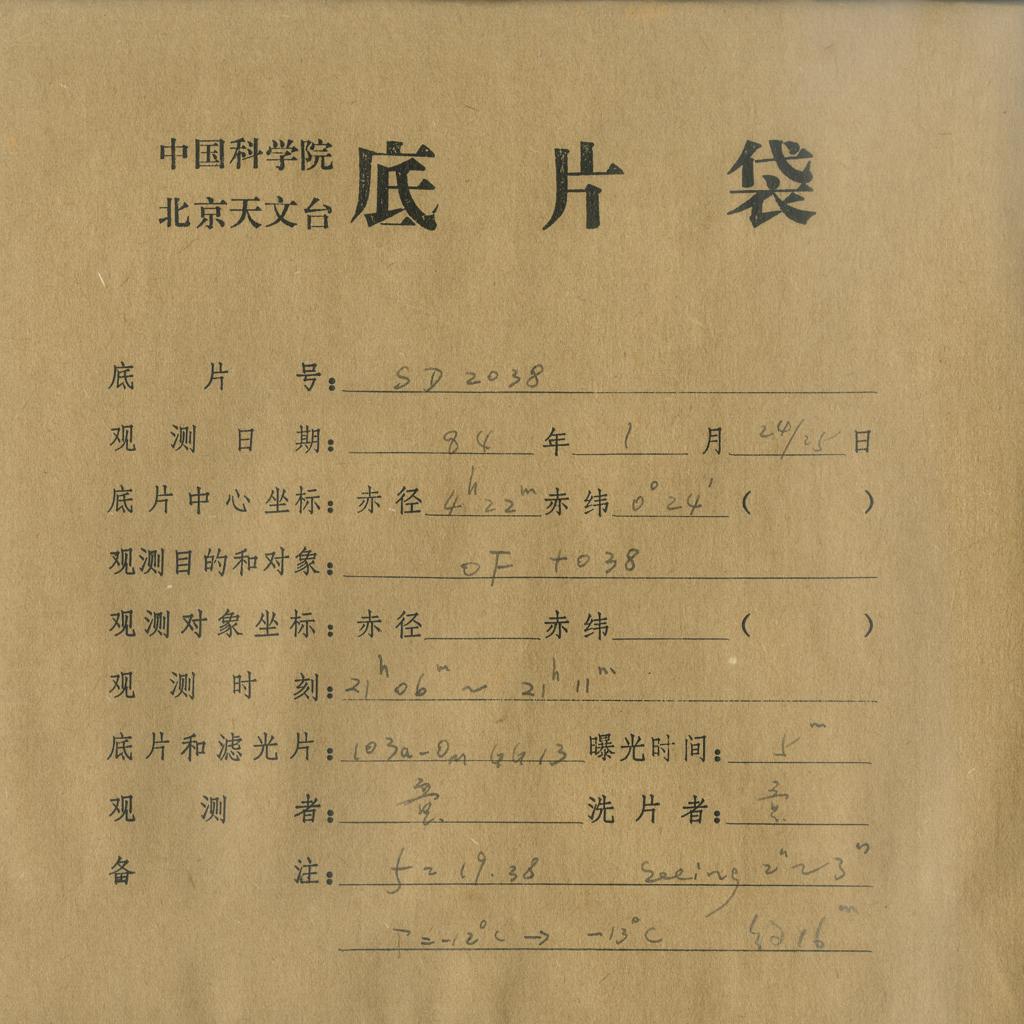 中国科学院
北京天文台
底片袋
底片号: SD 2038
观测日期: 84年1月24/25日
底片中心坐标: 赤径 4h22m 赤纬 0°24′ ( )
观测目的和对象: OF +038
观测对象坐标: 赤径 赤纬 ( )
观测时刻: 21h06m ~ 21h11m
底片和滤光片: 103a-O GG13 曝光时间: 5m
观测者: 洗片者:
备注: f= 19.38 seeing 2″~3″
T=-12°C → -13°C 16m